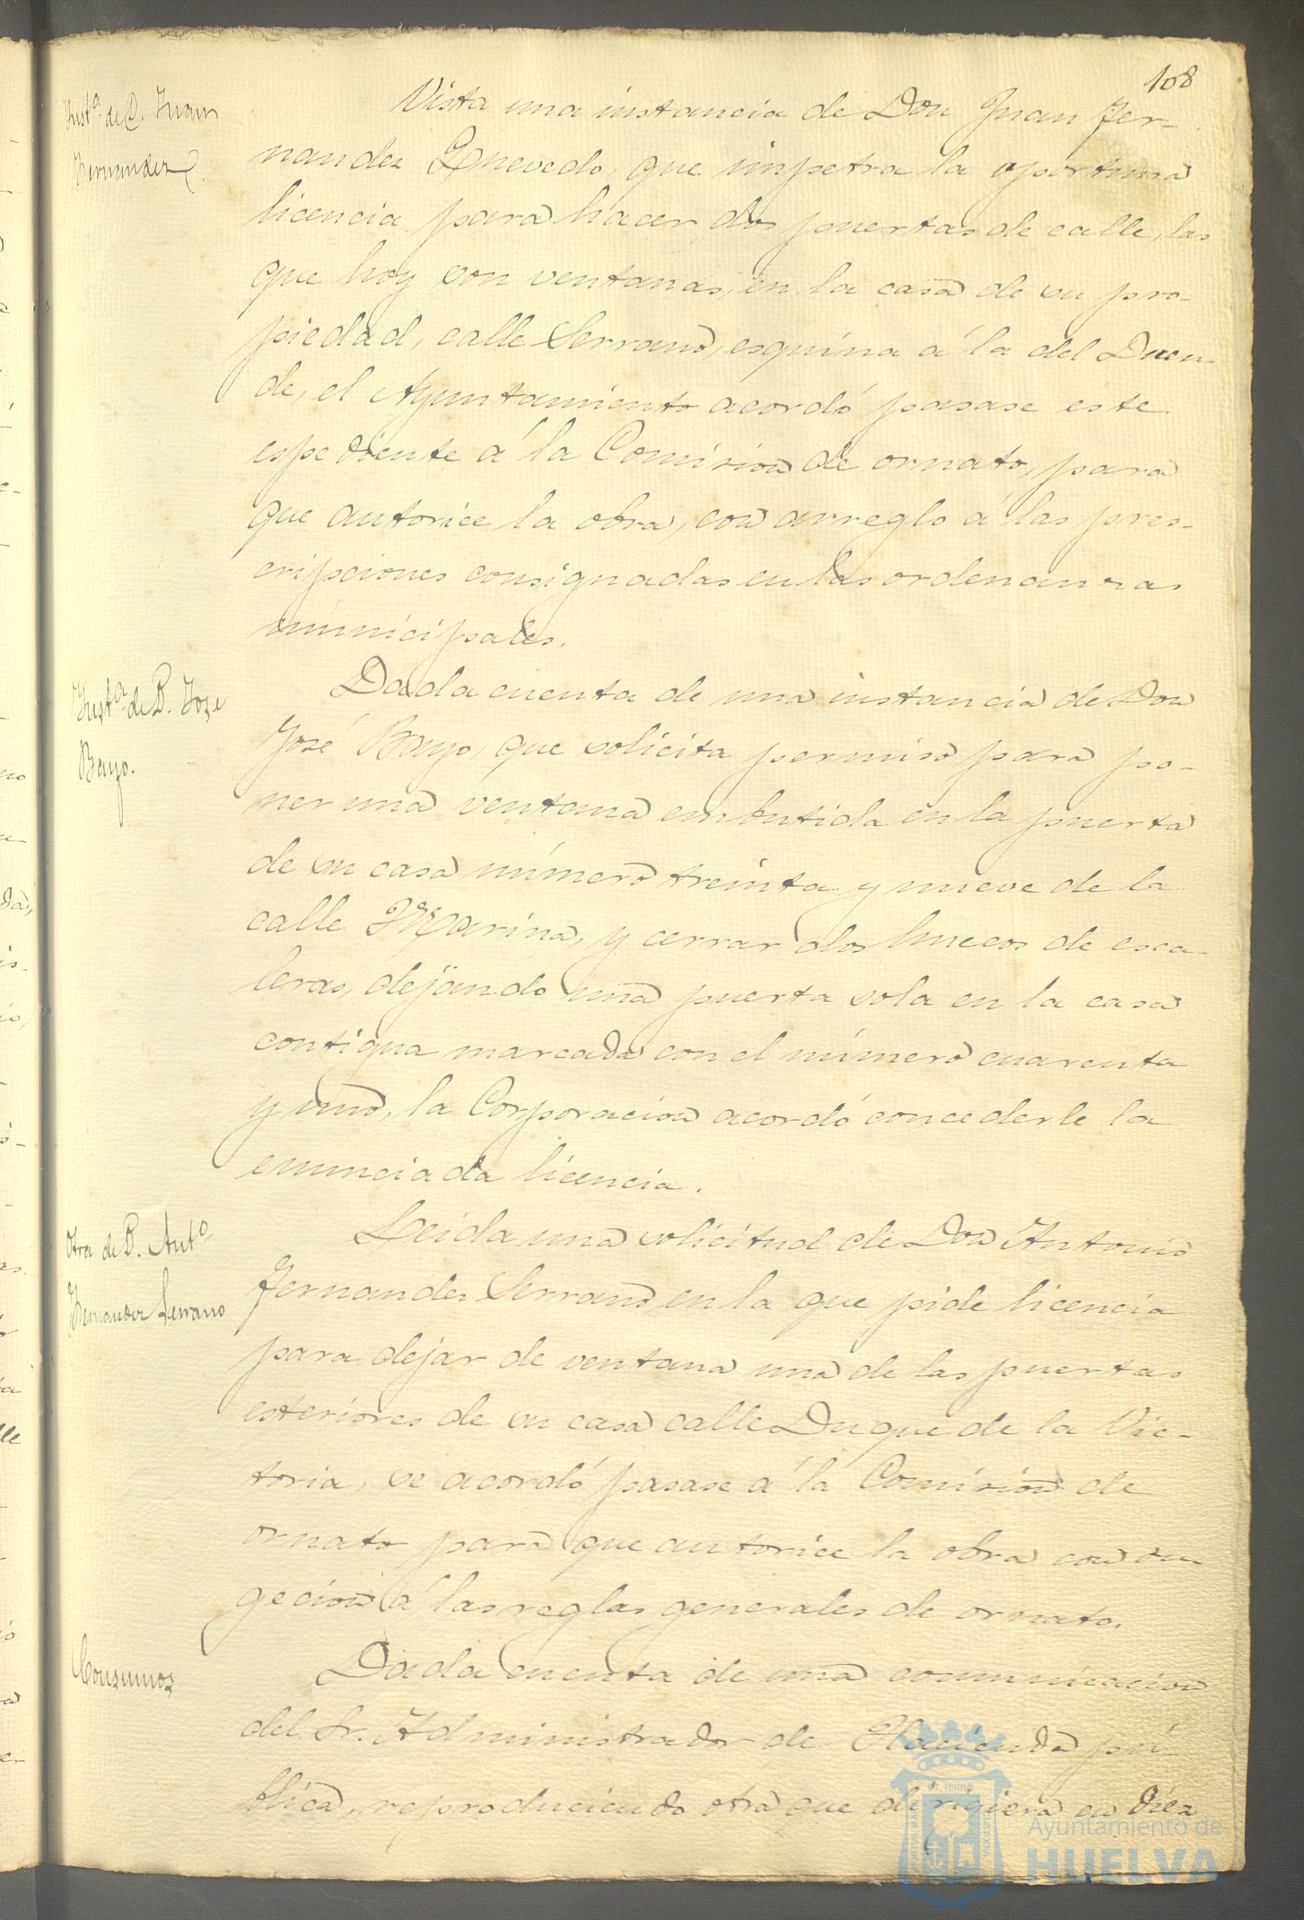 108
Inst.ª de D. Juan
Fernandez
Vista una instancia de Don Juan Fer-
nandez Quevedo, que impetra la oportuna
licencia para hacer dos puertas de calle, las
que hoy son ventanas, en la casa de su pro-
piedad, calle Serrano, esquina á la del Duen-
de, el Ayuntamiento acordó pasase este
espediente á la Comision de ornato, para
que autorice la obra, con arreglo á las pres-
cripciones consignadas en las ordenanzas
municipales.
Inst.ª de D. Jose
Bayo.
Dada cuenta de una instancia de Don
José Bayo, que solicita permiso para po-
ner una ventana embutida en la puerta
de su casa número treinta y nueve de la
calle Marina, y cerrar dos huecos de esca-
leras, dejando una puerta sola en la casa
contigua marcada con el número cuarenta
y uno, la Corporacion acordó concederle la
enunciada licencia.
Otra de D. Antº
Fernandez Serrano
Leida una solicitud de Don Antonio
Fernandez Serrano en la que pide licencia
para dejar de ventana una de las puertas
esteriores de su casa calle Duque de la Vic-
toria, se acordó pasase á la Comision de
ornato para que autorice la obra con su-
gecion á las reglas generales de ornato.
Consumos
Dada cuenta de una comunicacion
del Sr. Administrador de Hacienda pú-
blica, reproduciendo otra que dirigiera en diez
Ayuntamiento de
HUELVA